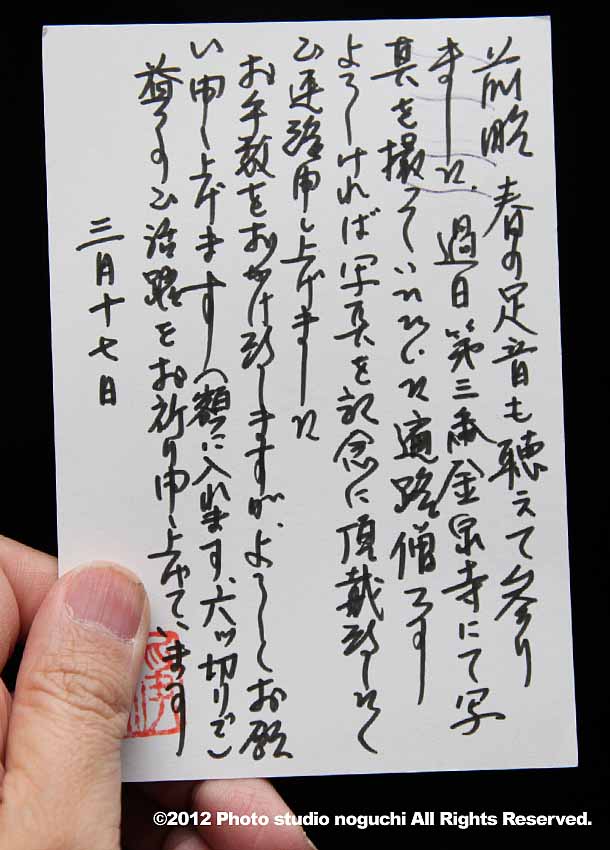 前略 春の足音も聴えて参り
ました。過日第三番金泉寺にて写
真を撮っていただいた遍路僧です
よろしければ写真を記念に頂戴致したく
ご連絡申し上げました
お手数をお掛け致しますが、よろしくお願
い申し上げます(額に入れます、六ッ切りで)
益々のご活躍をお祈り申し上げています
三月十七日
©2012 Photo studio noguchi All Rights Reserved.